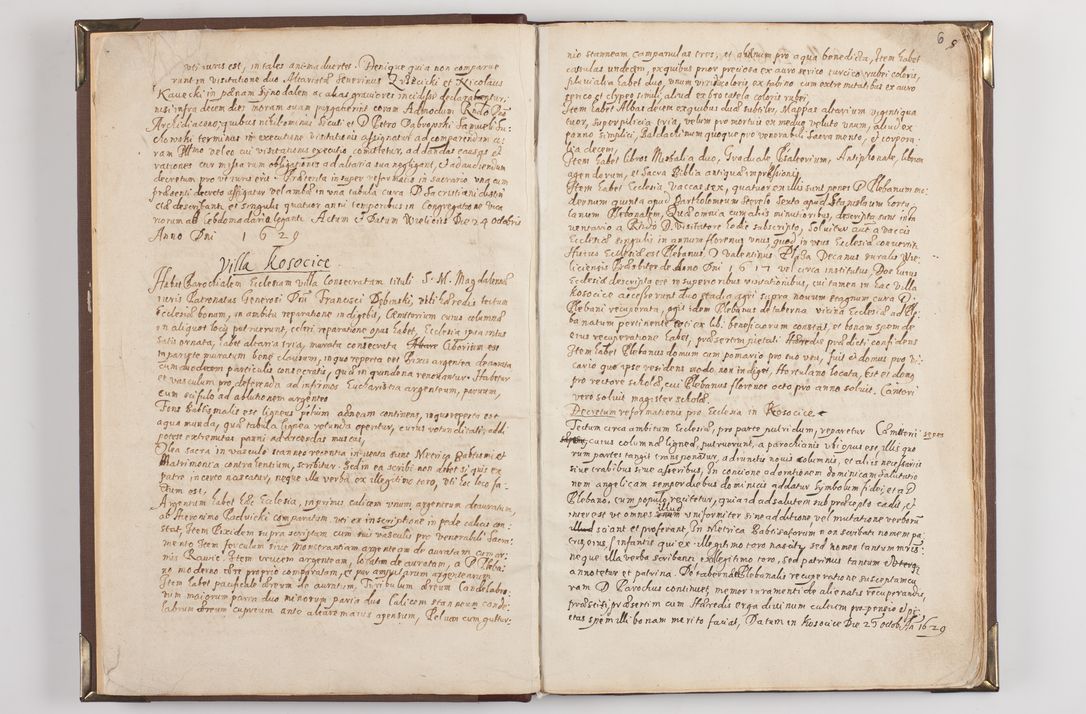 uti iuris est, in tales animaduertet. Denique quia non comparue
runt in visitatione duo Altaristæ Seuerinus et Nicolaus
Kawecki in pœnam synodalem ac alias grauiores incidisse declarantur:
nisi infra decem dies moram suam purgauerint coram Admodum Rndo Dno
Archidiacono; quibus nihilominus sicuti et D Petro Dabrowski Samueli
terminus in executione visitationis assignatur ad comparendum co:
ram Illmo vel eo cui visitationis executio comittetur, ad dandas causas et
rationes cur missarum obligationes ad altaria sua negligant, et ad audiendum
decretum pro ut iuris erit. Præsenta insuper reformatio in sacrario una cum
præsenti decreto affigatur vel ambæ in una tabula cura D. Sacristiani distin
ctæ describant. et singulis quatuor anni temporibus in Congregatione Vica
riorum ab hebdomadario legantur. Actum et Datum Wieliciæ Die 24 Octobris
Anno Dni 1629
Villa Kosocice.
Habet Parochialem Ecclesiam villa Consecratam tituli S. M. Magdalenæ
iuris Patronatus Generosi Dni Francisci Dębinski, ubi hæredis tectum
Ecclesiæ bonum, in ambitu reparatione indigebit, Cœmitorium cuius columnæ
in aliquot locis putruerunt, celeri reparatione opus habet, Ecclesia ipsa intus
satis ornata, habet altaria tria, murata consecrata Ciborium est
in pariete muratum bene clausum, in quo reperta est Pixis argentea deaurata
cum duodecem particulis consecratis, quæ in quindena renouantur. Habetur
et vasculum pro deferenda ad infirmos Eucharistia argenteum, paruum,
cum scifulo ad ablutionem argenteo
Fons Baptismalis est ligneus peluim æneam continens, in quo reperta est
aqua munda, quæ tabula lignea rotunda operitur, cuius rotunditati, addi
potest extremitas panni ad arcendas muscas,
Olea sacra in vasculo stanneo recentia inuenta sunt Metrica Baptismi et
Matrimonia contrahentium, scribitur. Sed in ea scribi non debet si quis ex
patre incerto nascatur, neque illa verba ex illegitimo toro, uti hoc loco fa:
ctum est,
Argentum habet hæc Ecclesia, inprimis calicem unum argenteum deauratum,
ab Hieronimo Radwicki comparatum. uti ex inscriptione in pede calicis con:
stat, Item Pixidem supra scriptam cum tribus vasculis pro Venerabili Sacra:
mento Item ferculum siue Monstrantiam argenteam deauratam cum ar:
mis Rawic. Item crucem argenteam, localim deauratam, a P Pleba:
no moderno ære proprio comparatam, et par ampullarum argentearum
Item habet pacificale æreum deauratum, Turibulum æreum Candelabro:
rum maiorum paria duo minorum paria duo Calicem stanneum cande:
labrum æreum cupreum ante altare maius apensum, Peluim cum guttur:
6 5
nio stanneam campanulas tres, et ahenum pro aqua benedicta, Item habet
casulas undecem, ex quibus prior preciosa ex auro serico turcico rubri coloris,
pluuialia habet duo, unum viridis coloris ex tabino cum extremitatibus ex auro
serico et clypeo simili, aliud ex brocatela coloris rubri,
Item habet Albas decem ex quibus duæ subtiles, Mappas altarium viginti qua
tuor, superpilicia tria, velum pro mortuis ex medio veluto unum, aliud ex
panno simplici, Baldachinum quoque pro venerabili Sacramento, et corpora:
lia decem,
Item habet libros Missalia duo, Graduale, Psalterium, Antiphonale, librum
agendorum, et Sacra Biblia antiquæ impressionis
Item habet Ecclesia Vaccas sex, quatuor ex illis sunt penes P Plebanum mo
dernum quinta apud Bartholomeum Sterelo Sexta apud Stanislaum hortu
lanum Plebanalem, Quæ omnia cum aliis minutioribus, descripta sunt in In
uentario a Rndo D. Visitatore hodie subscripto, Soluitur autem a vaccis
Ecclesiæ singulis in annum florenus unus, quod in usus Ecclesiæ conuertitur
Huius Ecclesiæ est Plebanus D Valentinus Plassa Decanus ruralis Wie
liciensis Præsbiter de Anno Dni 1617 vel circa institutus, Dos huius
Ecclesiæ descripta est in superioribus visitationibus, cui tamen in hac Villa
Kosocice accesserunt duo stadia agri supra nouum stagnum cura D.
Plebani recuperata, agit idem Plebanus de taberna vicina Ecclesiæ ad Ple
banatum pertinente uti ex lib. beneficiorum constat, et bonam spem de
eius recuperatione habet, præsertim pietati Hæredis prædicti confidens
Item habet Plebanus domum cum pomario pro suo usu, fuit et domus pro Vi:
cario qua ipse residens modo non indiget, Hortulano locata, Est et domus
pro rectore scholæ, cui Plebanus florenos octo pro anno soluit. Cantori
vero soluit magister scholæ.
Decretum reformationis pro Ecclesia in Kosocice.
Tectum circa ambitum Ecclesiæ, pro parte putridum, reparetur Cœmiterii sepes
cuius columnæ ligneæ, putruerunt, a parochianis ubi opus est, illis quo
rum partes tangit transponatur, adiunctis nouis columnis, et aliis necessariis
siue trabibus siue asseribus, In concione ad orationem dominicam Salutatio
nem angelicam semper diebus dominicis addatur Symbolum fidei, et a D
Plebano, cum populo recitetur, quia id ad salutem sub præcepto cadit, et
interest ut omnes illud uniformiter sine additione vel mutatione verborum
sciant et proferant, In Metrica Babtisatorum non scribatur nomen pa
tris eius infantis qui ex illegitimo toro nascitur, sed nomen tantum matris:
neque illa verba scribantur, ex illegitimo toro, sed patrinus tantum
annotetur et patrina. De taberna Plebanalis recuperatione susceptam cu
ram D Parochus continuet, memor iuramenti de alienatis recuperandis,
præstiti, præsertim cum Hæredis erga diuinum cultum propensio et pi
etas spem illi bonam merito faciat, Datum in Kosocice Die 25 Octob. An 1629